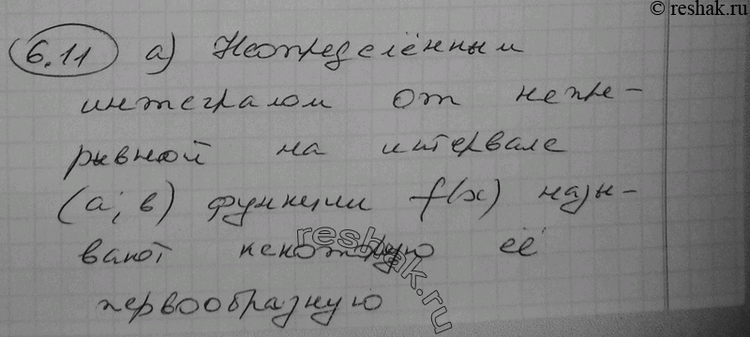 © reshak.ru
6.11 а) Неопределённым
интегралом от непре-
рывной на интервале
(а; в) функции f(x) назы-
вают некоторую её
первообразную
reshak.ru